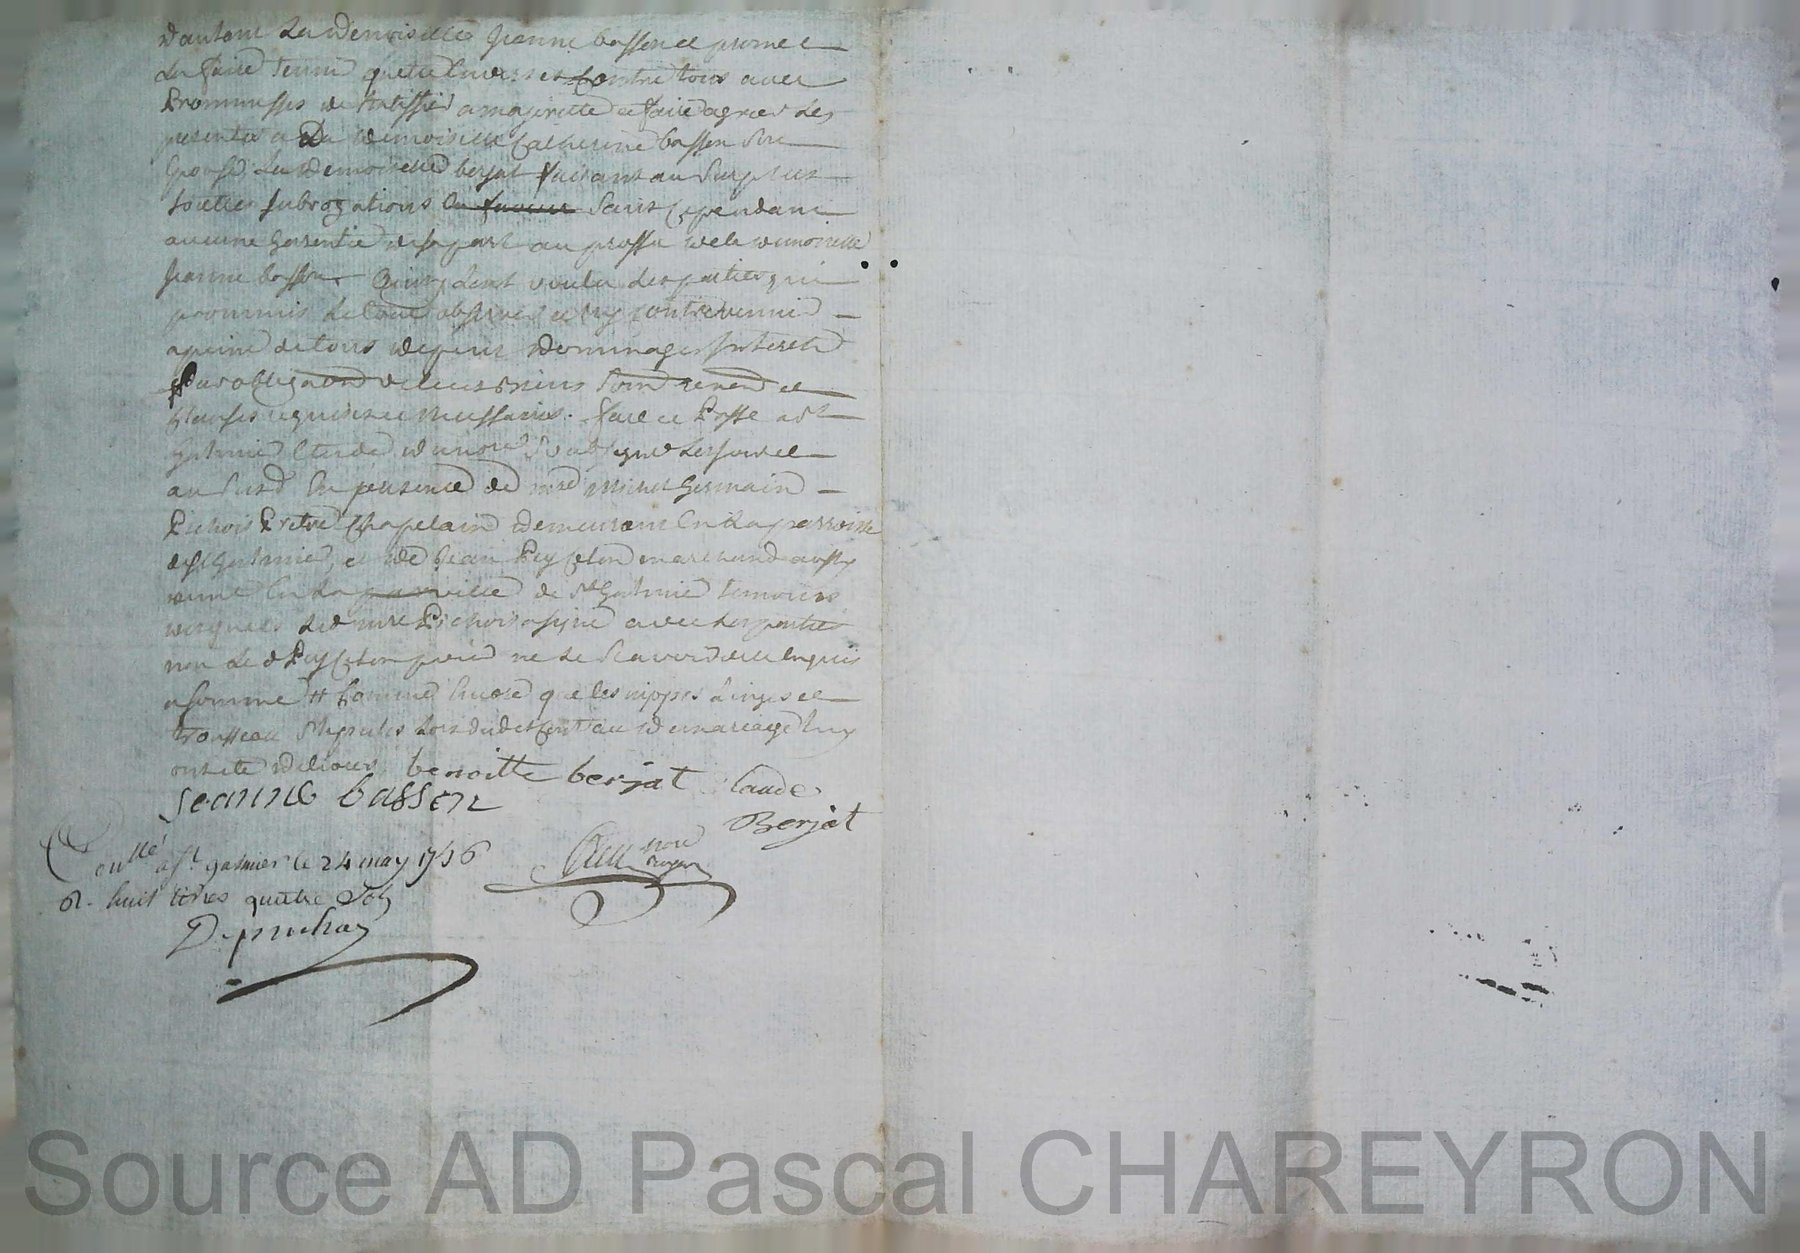 d'autant la demoiselle Jeanne basson et promet
la faire tenir quitte envers et contre tous avec
promesses de ratiffier a majoritté et faire agreer les
presentes a la demoiselle Catherine basson
la demoiselle berjat faisant au surplus
touttes subrogations en faveur sans cependant
aucune garentie de sa part au proffit de la demoiselle
Jeanne basson Ainsy dont voulu les parties qui
promis le tout observer et ny contrevenir
a peine de tous depens dommages interets
par obligaons de leurs biens renon et
clauses requises et necessaires. fait et passé a st
galmier etude du nore soubsigné les jour et
an susd en presence de mre Michel Germain
Pichois Prêtre Chapelain demeurant en la parroisse
de st galmier, et de Jean Peysselon marchand
en la par ville de st Galmier temoins
desquels led mre Pichois a signé avec les parties
non led Peysselon pour ne le scavoir de ce enquis
et sommé # comme encore que les nippes linges et
trousseau stipulés lors dudit contrat de mariage luy
ont eté delivrés benoitte berjat Claude
Jeanne basson
Berjat
nore
Conllé a st galmier le 24 may 1756
R. huit livres quatre sols